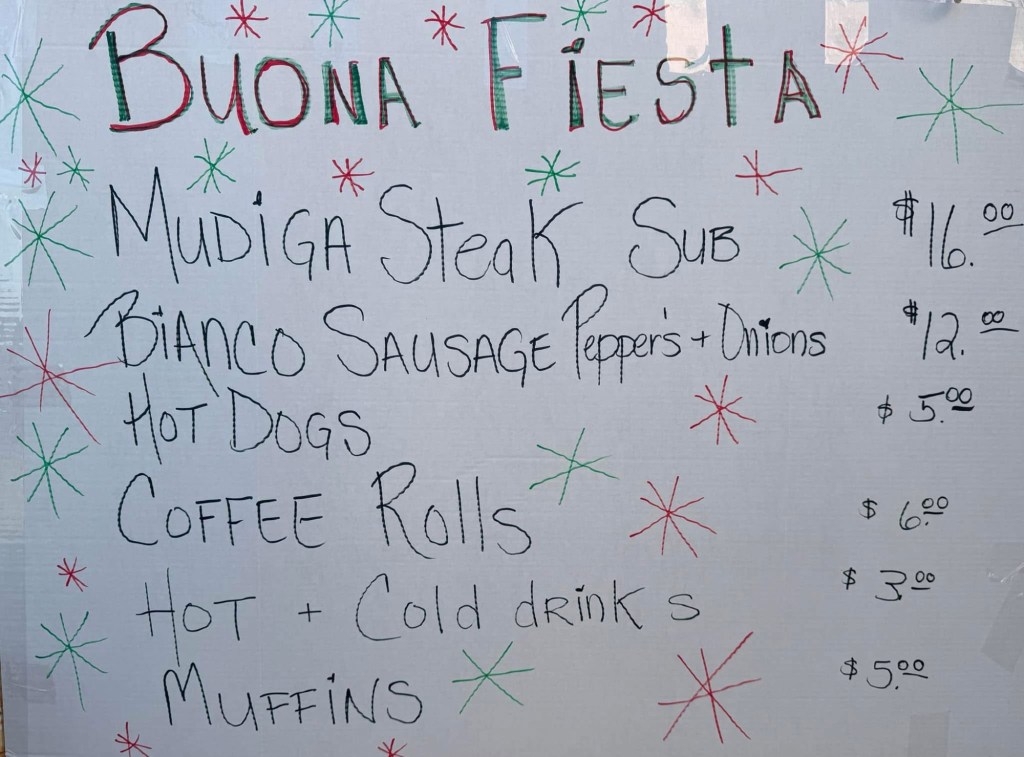 BUONA FiESTA
MUDiGA Steak SUB $16.00
BiANCO SAUSAGE Pepper's + Onions $12.00
HOT DOGS $5.00
COFFEE Rolls $6.00
HOT + Cold dRinks $3.00
MUFFiNS $5.00